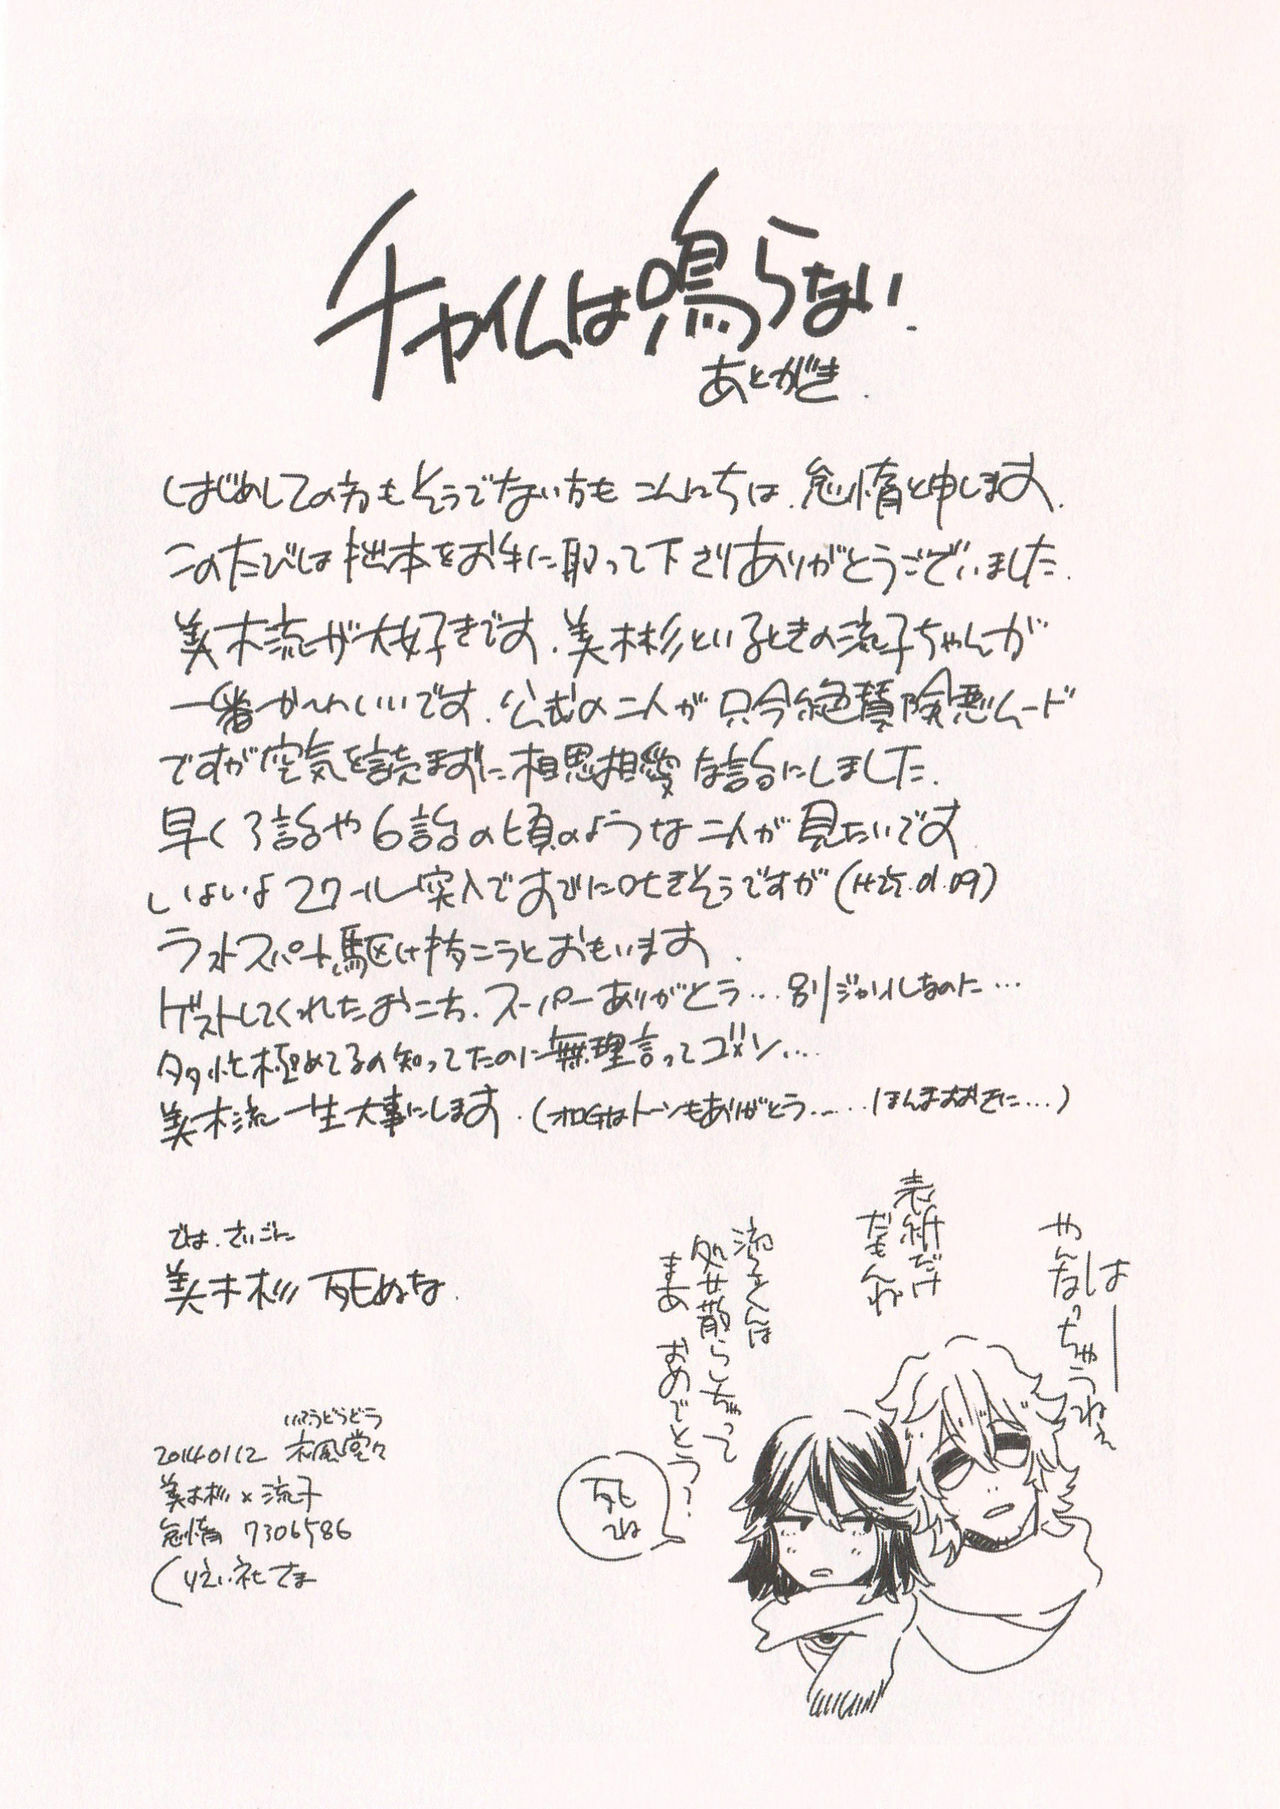 チャイムは鳴らない.
あとがき.
はじめしての方もそうでない方もこんにちは.怠惰と申します.
このたびは拙本をお手に取って下さりありがとうございました.
美木流が大好きです.美木杉といるときの流子ちゃんが
一番かわいいです.公式の二人が只今絶賛険悪ムード
ですが空気を読まずに相思相愛な話にしました.
早く3話や6話の頃のような二人が見たいです
いよいよ2クール突入ですでに吐きそうですが(H25.01.09)
ラストスパート駆け抜こうとおもいます.
ゲストしてくれたおこち、スーパーありがとう…別ジャンルなのに…
多忙極めてるの知ってたのに無理言ってゴメン…
美木流一生大事にします.(トーンもありがとう……ほんまおおきに…)
では.さいごに
美木杉 死ぬな.
はー
やんなっちゃうねぇ
表紙だけ
だもんね
流子くんは
処女散らしちゃって
まぁ おめでとう?
死ね
いふうどうどう
20140112 衣風堂々
美木杉×流子
怠惰 7306586
くりえい社さま